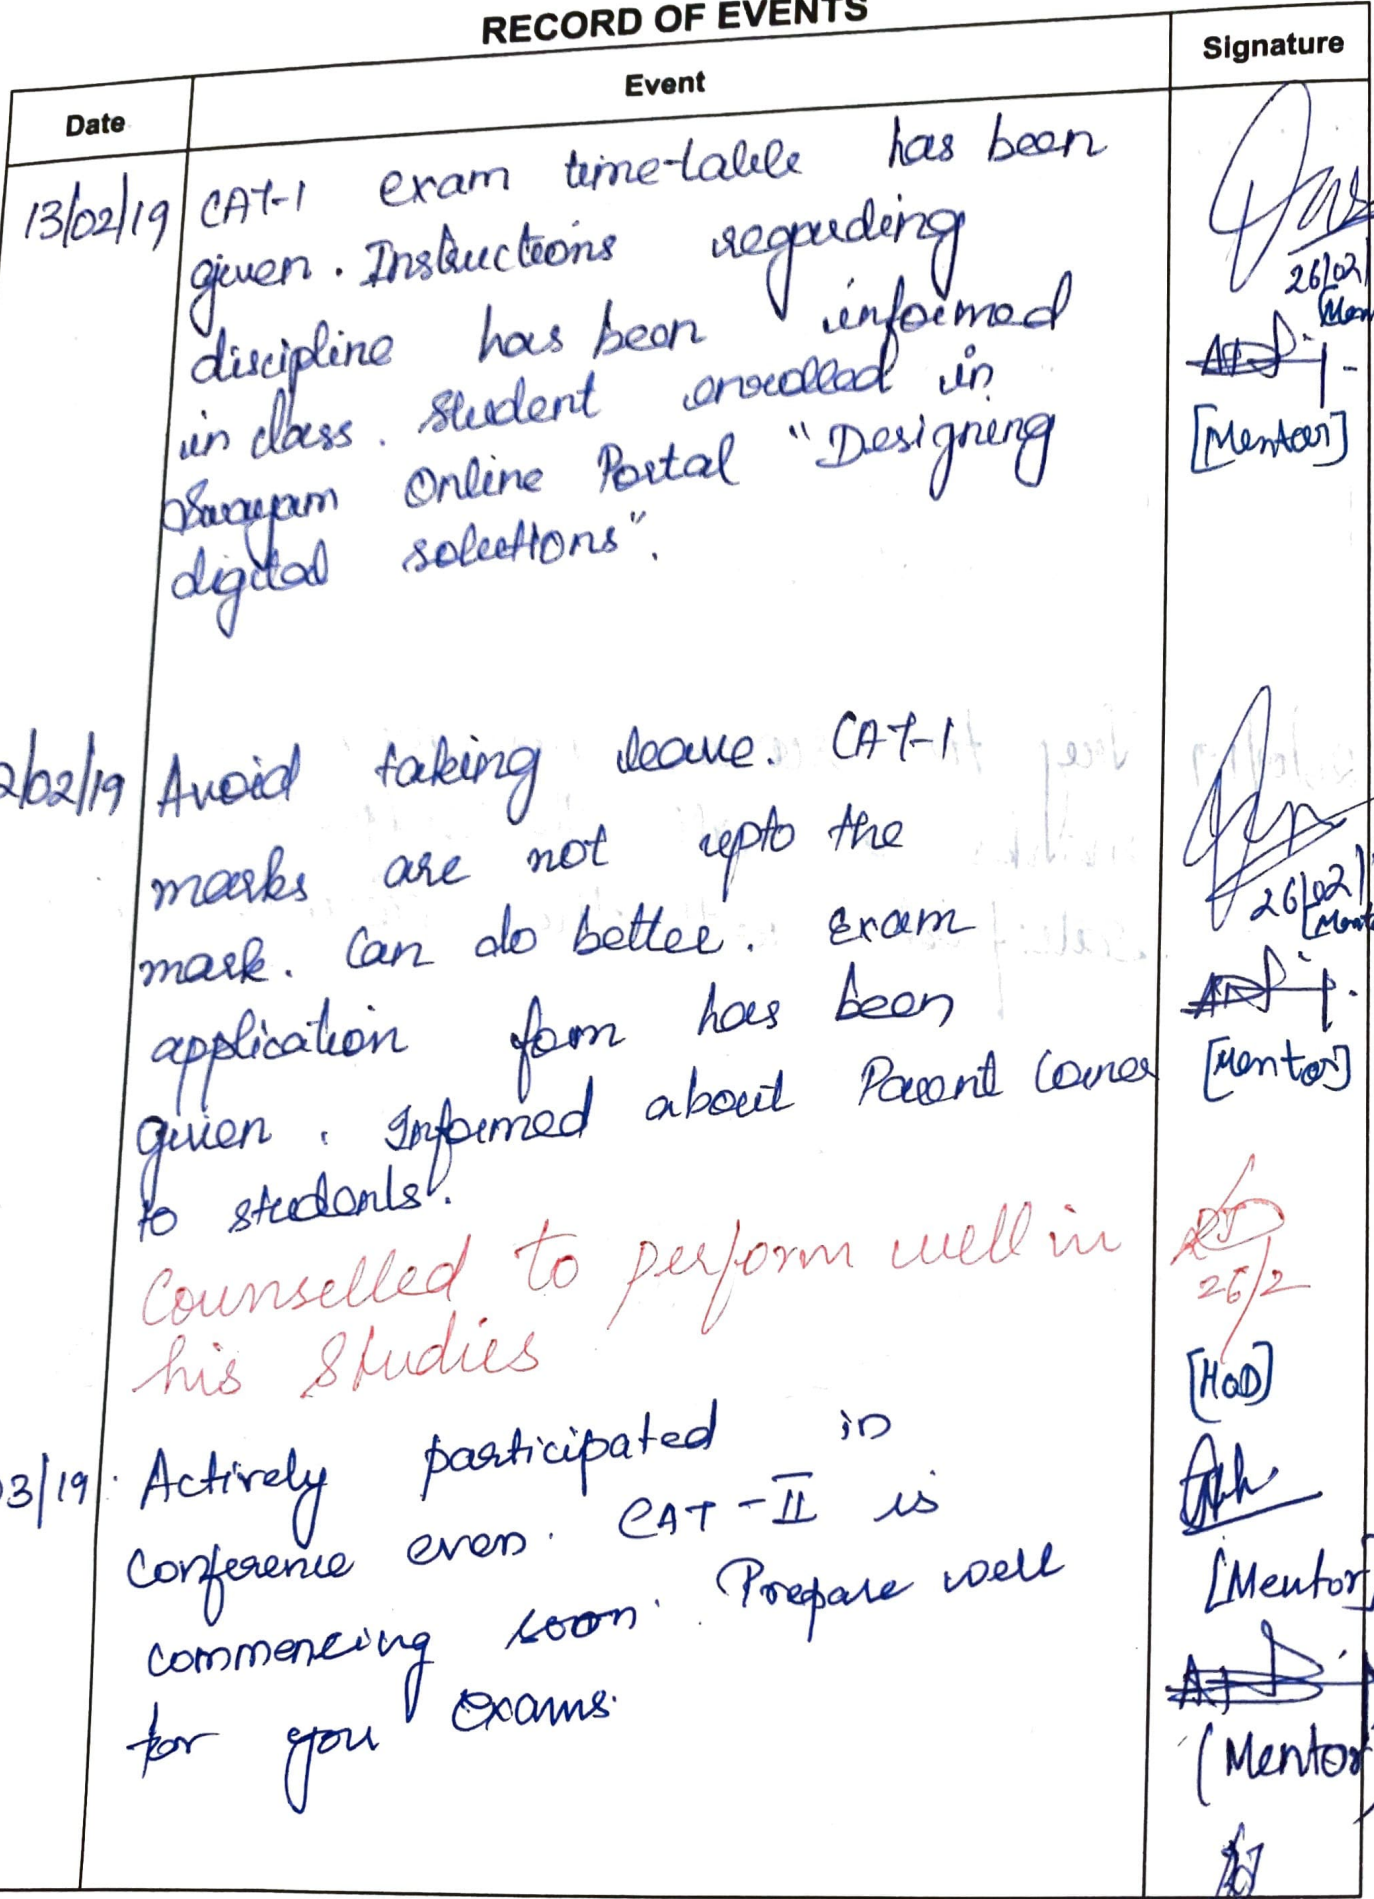 RECORD OF EVENTS
Date Event Signature
13/02/19 CAT-1 exam time-table has been
given. Instructions regarding
discipline has been informed
in class. Student enrolled in
Swayam Online Portal "Designing
digital solutions".
26/02/
[Men
[Mentor]
2/02/19 Avoid taking leave. CAT-1
marks are not upto the
mark. Can do better. Exam
application form has been
given. Informed about Parent Corner
to students.
26/02/
[Ment
[Mentor]
Counselled to perform well in
his Studies
26/2
[HOD]
03/19 Actively participated in
Conference even. CAT-II is
commencing soon. Prepare well
for you exams.
[Mentor]
(Mentor)